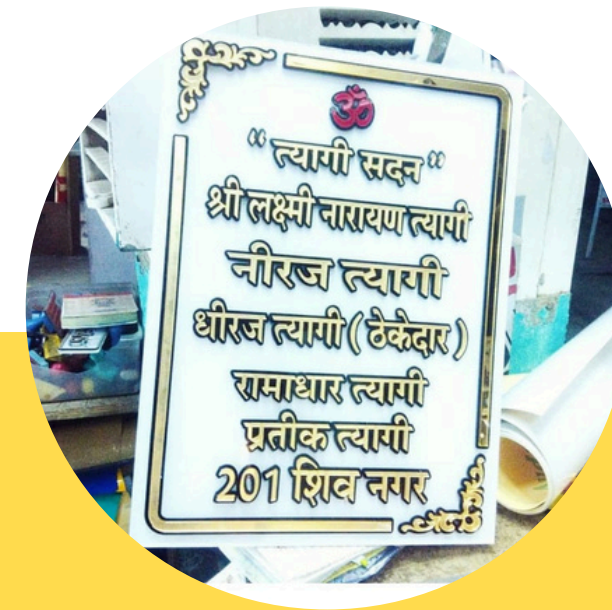 ॐ
“ त्यागी सदन ”
श्री लक्ष्मी नारायण त्यागी
नीरज त्यागी
धीरज त्यागी ( ठेकेदार )
रामाधार त्यागी
प्रतीक त्यागी
201 शिव नगर